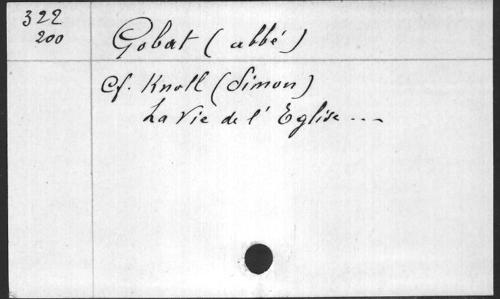 322
200
Gobat (abbé)
Cf. Knoll (Simon)
La Vie de l'Eglise ---